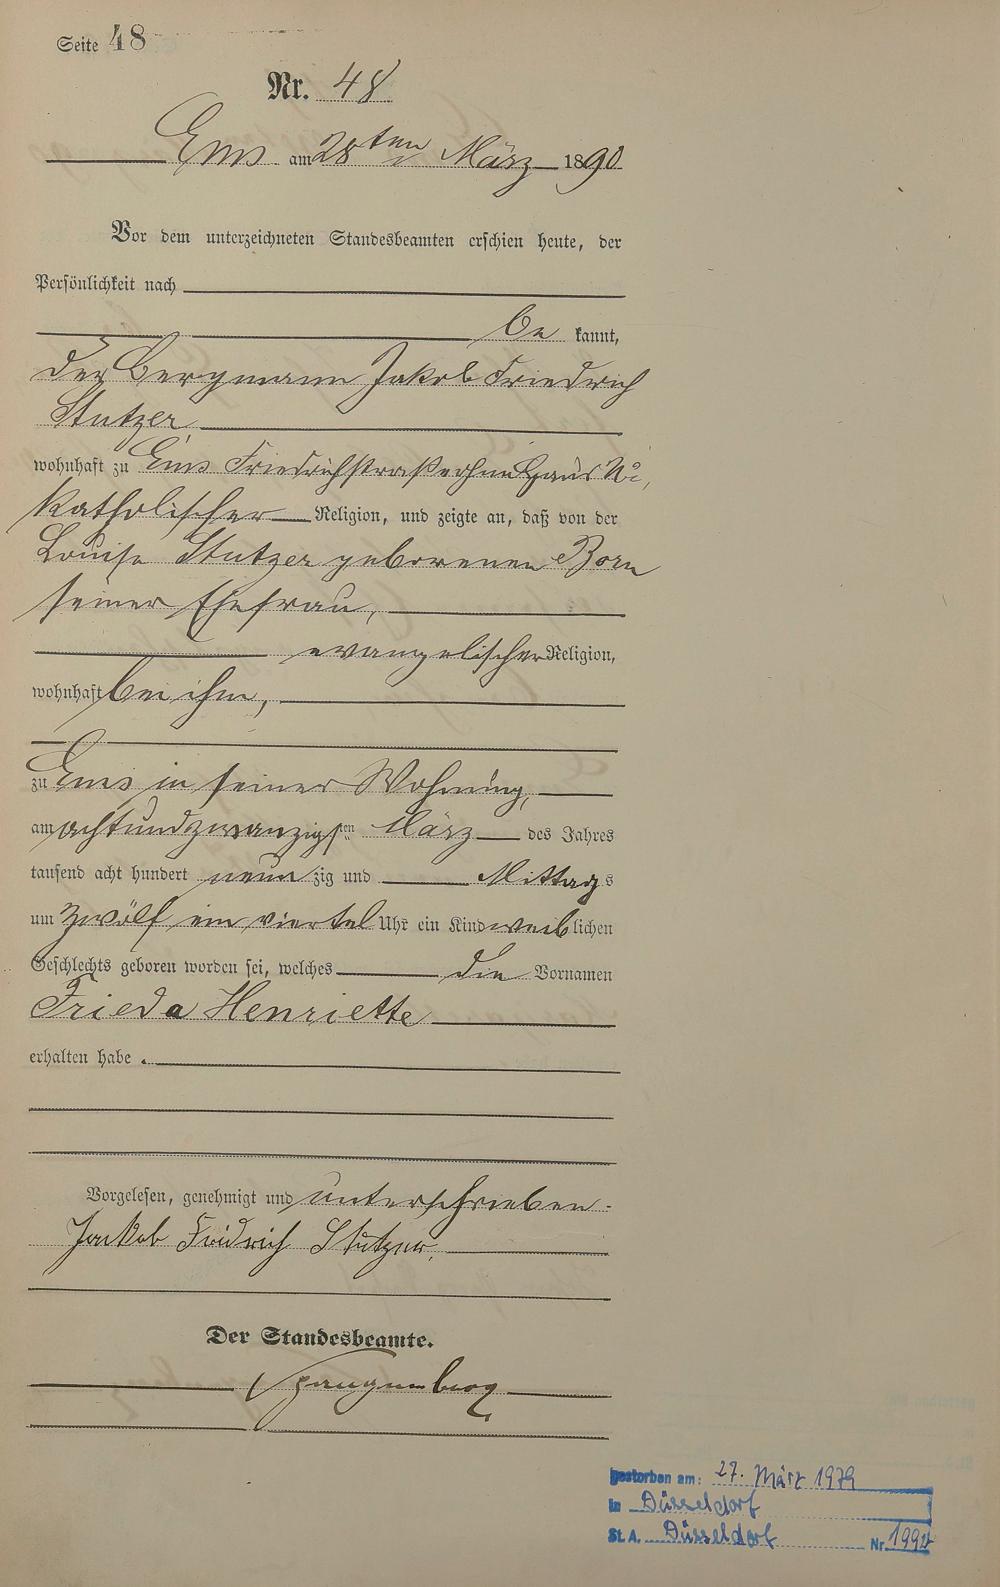 Seite 48
Nr. 48
Ems am 28ten März 1890
Vor dem unterzeichneten Standesbeamten erschien heute, der
Persönlichkeit nach
be kannt,
der Bergmann Jakob Friedrich
Stutzer
wohnhaft zu Ems Friedrichstraße ohne Haus No,
katholischer Religion, und zeigte an, daß von der
Louise Stutzer geborenen Born
seiner Ehefrau,
evangelischer Religion,
wohnhaft bei ihm,
zu Ems in seiner Wohnung,
am achtundzwanzigsten März des Jahres
tausend acht hundert neun zig und Mittags
um zwölf ein viertel Uhr ein Kind weiblichen
Geschlechts geboren worden sei, welches die Vornamen
Frieda Henriette
erhalten habe.
Vorgelesen, genehmigt und unterschrieben.
Jakob Fridrich Stutzer.
Der Standesbeamte.
Spangenberg
gestorben am: 27. März 1979
in Düsseldorf
St. A. Düsseldorf Nr.